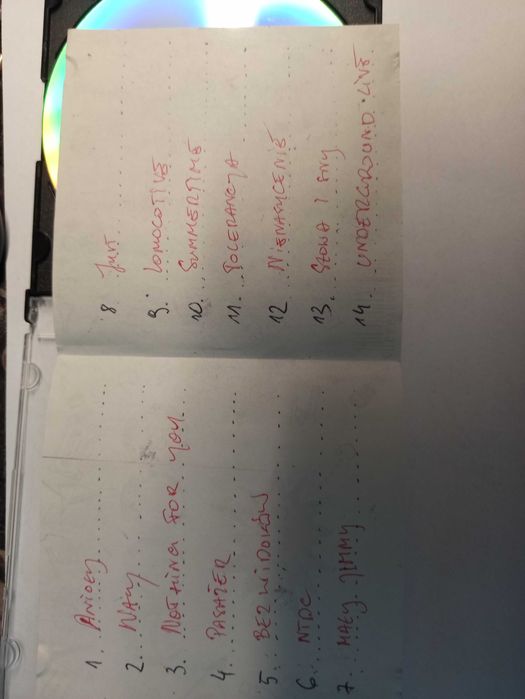 1. ANIOŁY
2. NAIWY
3. NOTHING FOR YOU
4. PASAŻER
5. BEZ WIDOKÓW
6. NTOC
7. MAŁY JIMMY
8
9. LOMOCOTIVE
10. SUMMERTIME
11. TOLERANCJA
12 NIENASYCENIE
13. SŁOWA I
14. UNDERGROUND LIVE